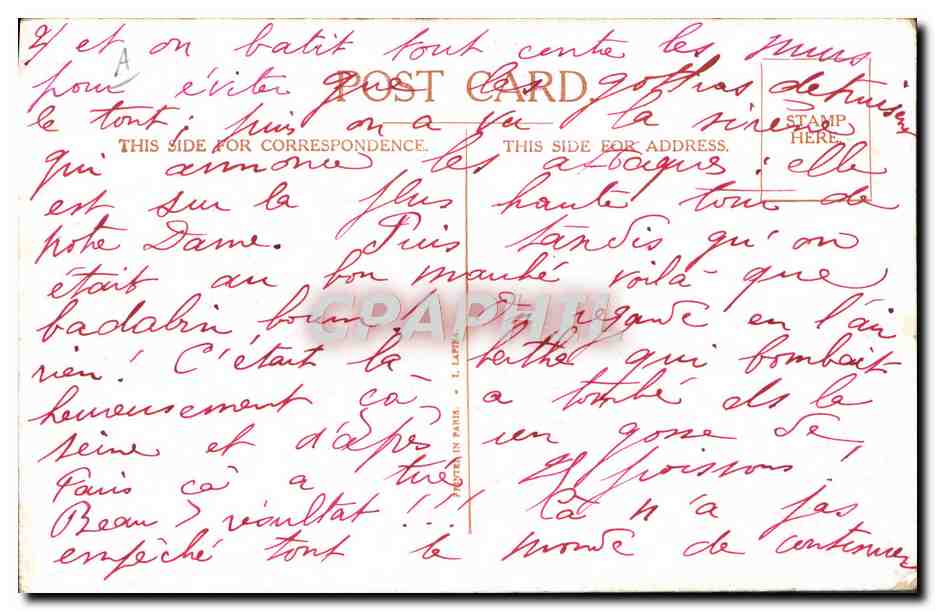 2/ et on batit tout contre les murs
A
pour éviter que les gothas detruisent
POST CARD
le tout; puis on a vu la sirène
STAMP
HERE.
THIS SIDE FOR CORRESPONDENCE.
THIS SIDE FOR ADDRESS.
qui annonce les attaques: elle
est sur la plus haute tour de
notre Dame. Puis tandis qu'on
était au bon marché voilà que
badabin boum! On regarde en l'air
CPAPHIL
rien! C'était la berthe qui bombait
heureusement çà a tombé ds la
seine et d'après un gosse de
Paris çà a tué 21 poissons!
Beau résultat!!! Cà n'a pas
empêché tout le monde de continuer
PRINTED IN PARIS. • I. LAPINA.